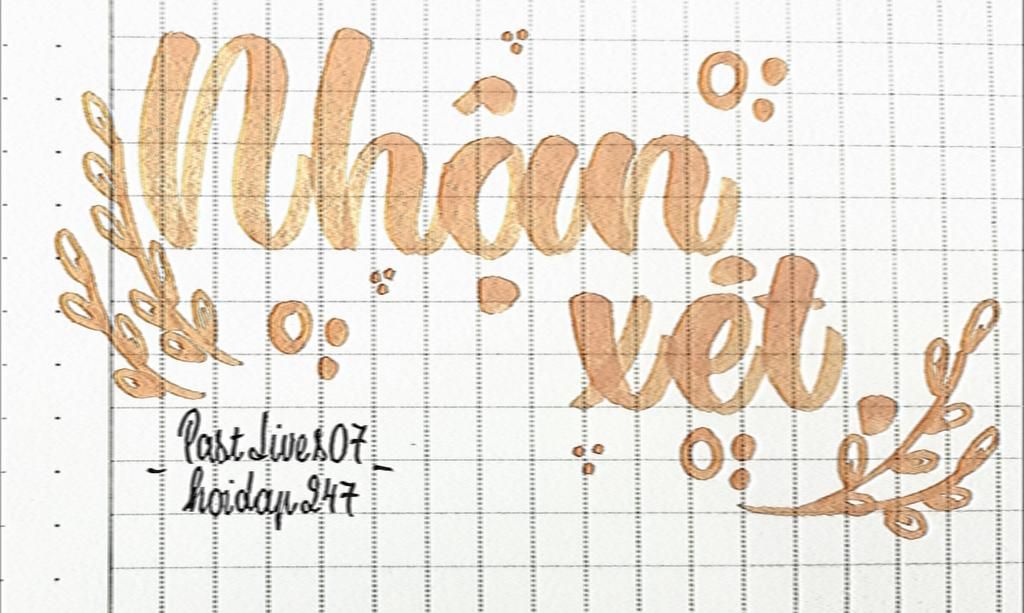 Nhận
xét
Past Lives07
- hoidap247 -